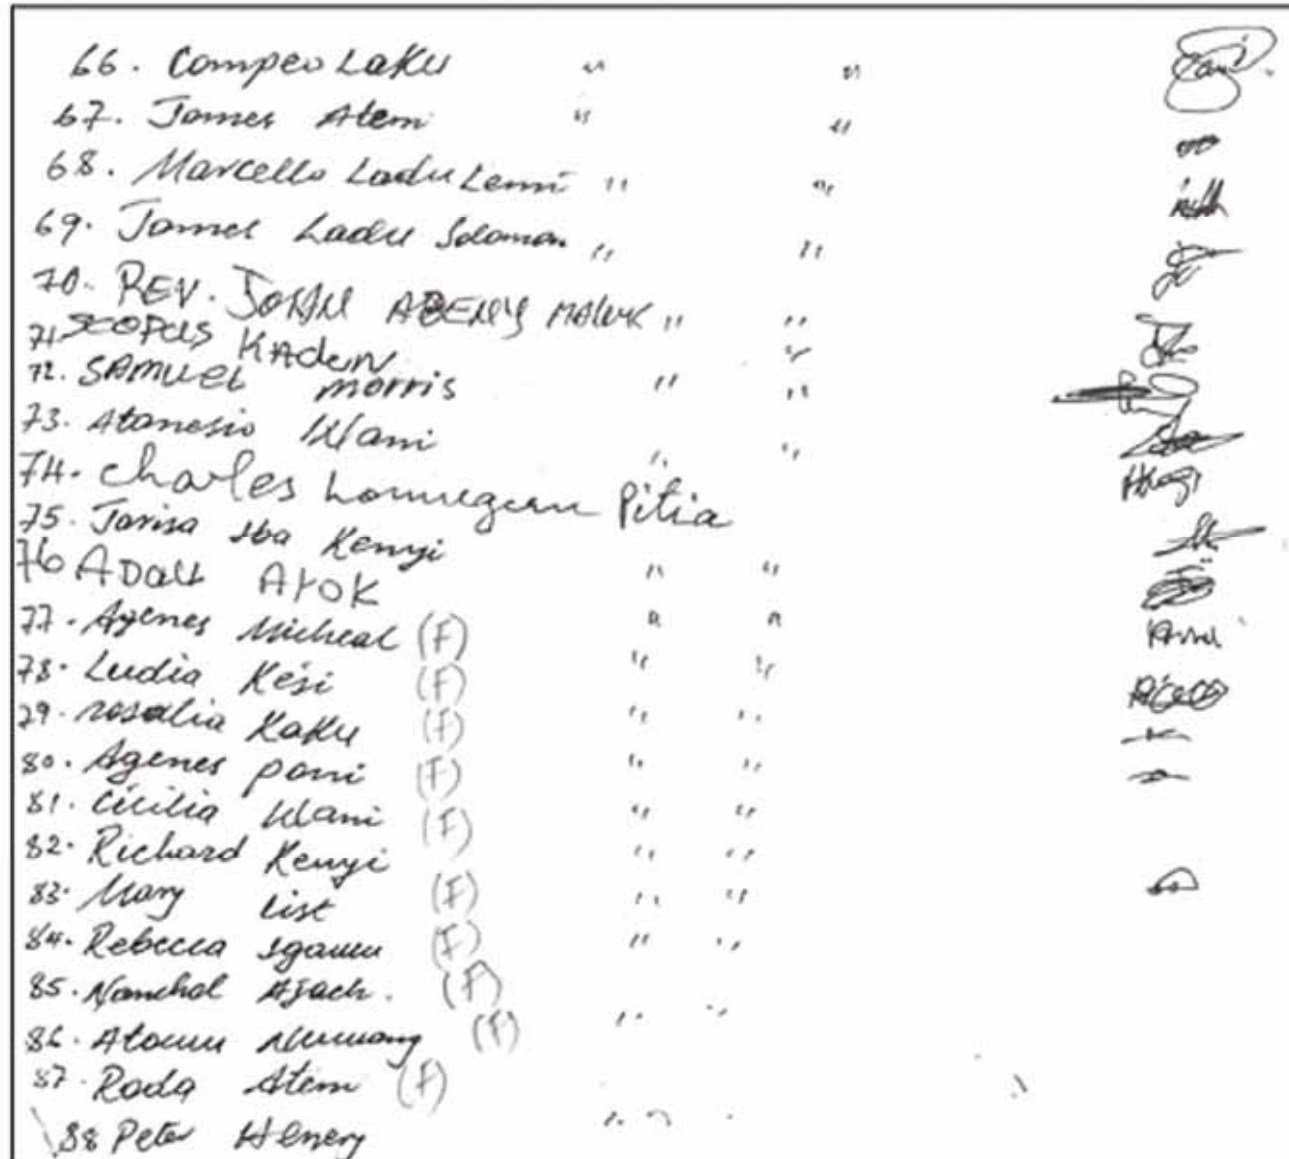 66. Compeo Laku " "
67. James Atem " "
68. Marcello Ladu Lemi " "
69. James Ladu Solomon " "
70. REV. JOHN ABENY MALUK " "
71 SCOPUS KADEN "
72. SAMUEL morris " "
73. Atanesio Wani " "
74. Charles Lomugun Pitia
75. Jarisa Iba Kenyi
76 ADAU AYOK " "
77. Agenes Micheal (F) " "
78. Ludia Kesi (F) " "
79. rosalia Kaku (F) " "
80. Agenes poni (F) " "
81. Cicilia Wani (F) " "
82. Richard Kenyi " "
83. Mary List (F) " "
84. Rebecca (F) " "
85. Nanchol Ajach. (F)
86. (F) " "
87. Roda Atem (F)
88 Peter Henery " "